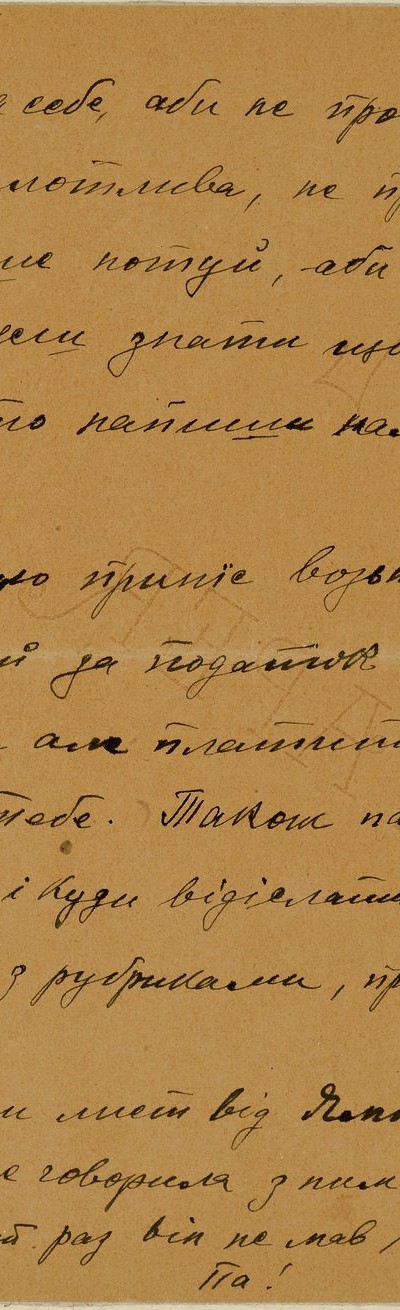 себе, аби не про
лотлива, не п
ше потуй, аби
если знати що
то напиши нам
ую припіє возьм
й за податок
але платит
тебе. Також на
і куди відіслати
з рубриками, пр
ли лист від Ямп
е говорила з ним
ий раз він не мав
Па!